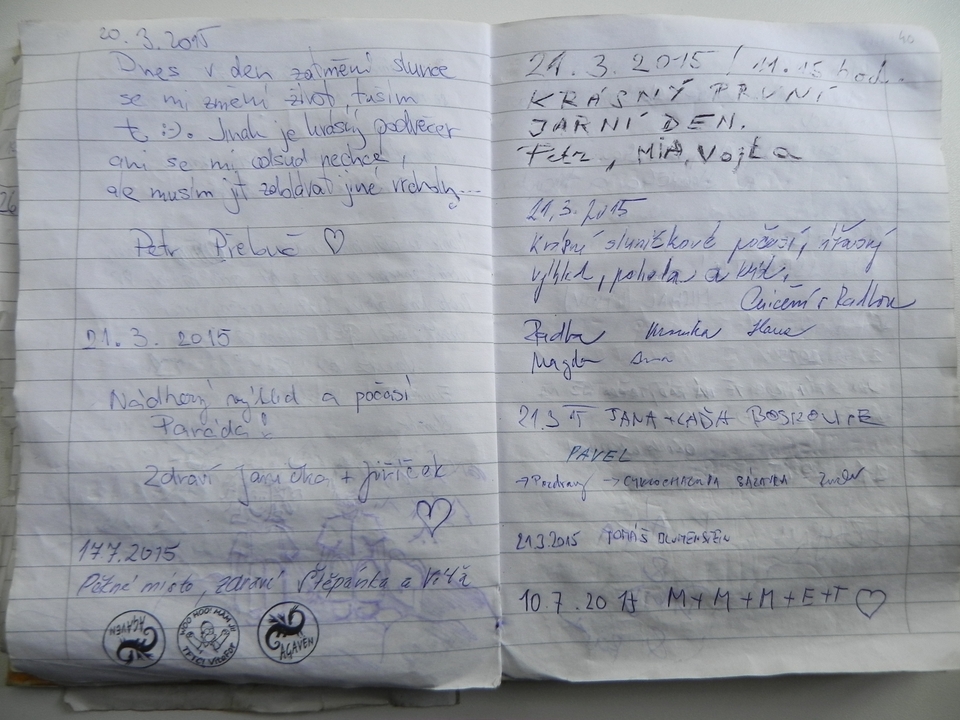 20. 3. 2015
Dnes v den zatmění slunce
se mi změní život, tuším
to :). Jinak je krásný podvečer
ani se mi odsud nechce,
ale musím jít zdolávat jiné vrcholy...
Petr Přelouč
21. 3. 2015
Nádherný výhled a počasí
Paráda!
Zdraví Janička + Jiříček
17.7.2015
Pěkné místo, zdraví Štěpánka a Víťa
AGAVEN
HOO HOO! HAN JI
TFTC! VitaFor
AGAVEN
40
21. 3. 2015 / 11.15 hod.
KRÁSNÝ PRVNÍ
JARNÍ DEN.
Petr, MIA, Vojta
21.3.2015
Krásné sluníčkové počasí, úžasný
výhled, pohoda a klid.
Cvičení s Radkou
Radka Monika Hana
Magda
21.3 15 JANA + LAĎA BOSKOVICE
PAVEL
→Pozdravy →
21.3.2015 TOMÁŠ
10.7.2015 M+M+M+E+T
26